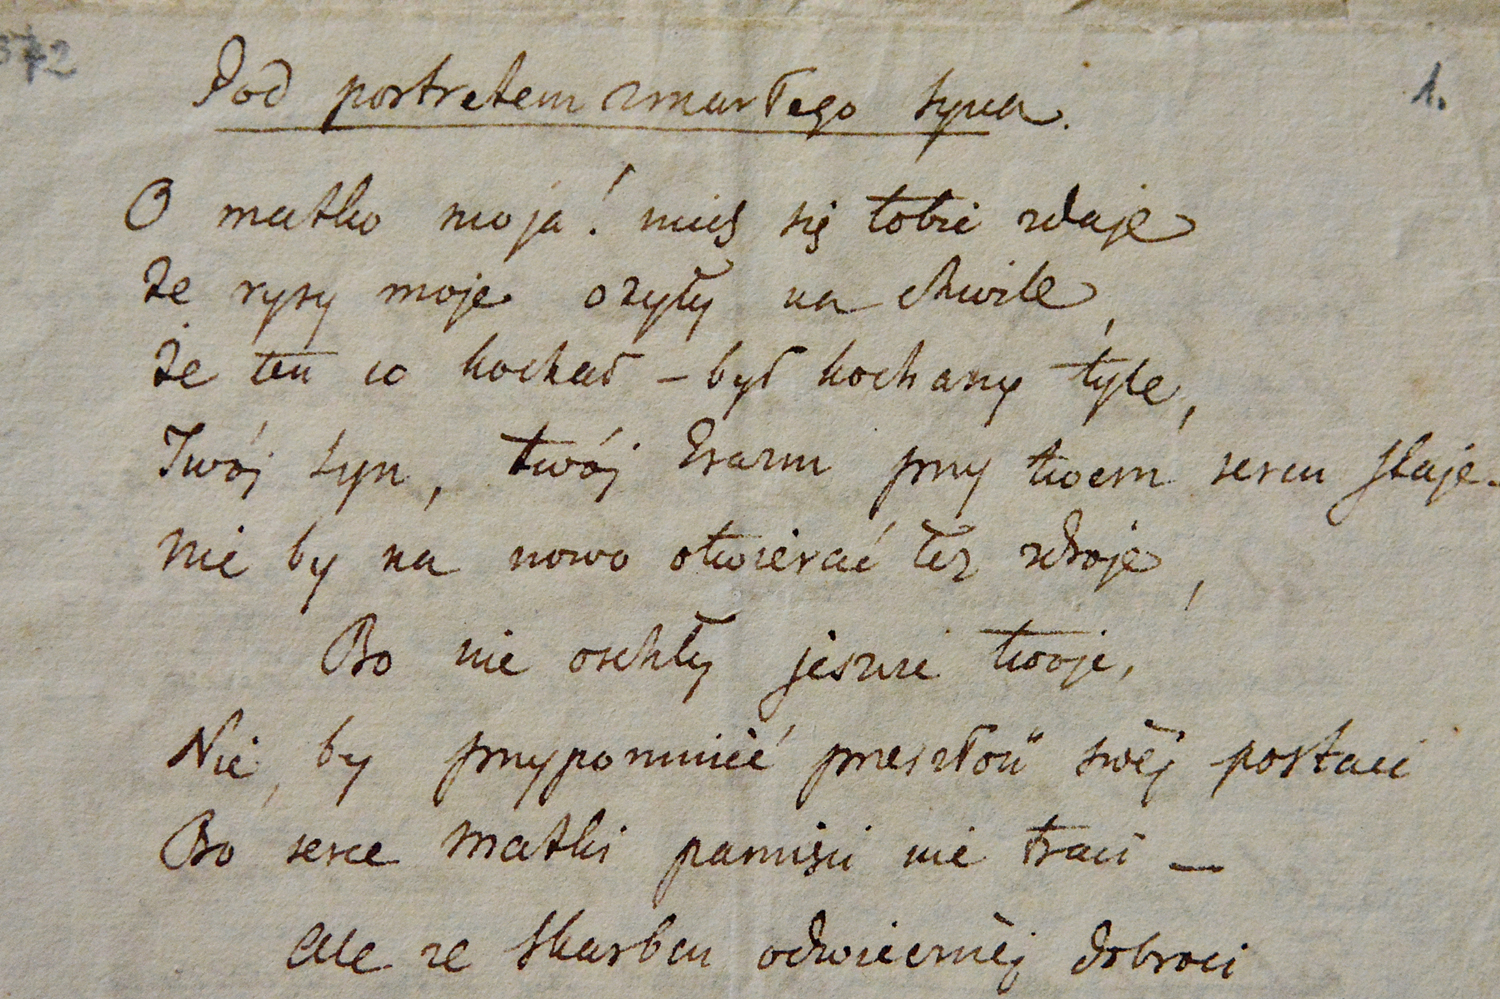 572 1.
Pod portretem zmarłego syna.
O matko moja! niech się tobie zdaje
Że rysy moje ożyły na chwile,
Że ten co kochał – był kochany tyle,
Twój syn, twój Erazm przy twem sercu staje –
Nie by na nowo otwierać łez zdroje,
Bo nie oschły jeszcze twoje,
Nie, by przypomnieć przeszłość swéj postaci
Bo serce matki pamięci nie traci –
Ale ze skarbcu odwiecznéj dobroci